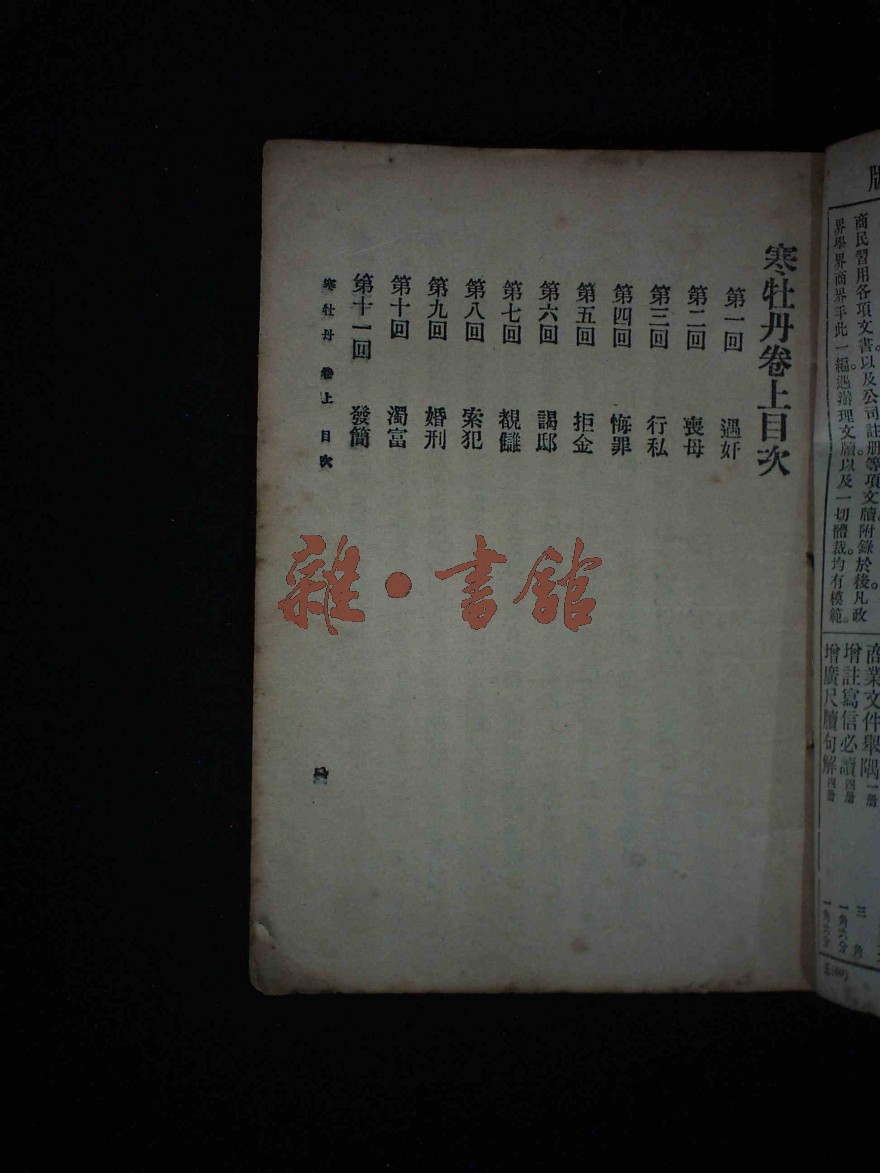 版
商民習用各項文書。以及公司註册等項文牘。附錄於後。凡政
界學界商界手此一編。遇辦理文牘。以及一切體裁。均有模範。
商業文件舉隅 一册 三角
增註寫信必讀 四册 一角六分
增廣尺牘句解 四册 一角六分
寒牡丹卷上目次
第一回 遇奸
第二回 喪母
第三回 行私
第四回 悔罪
第五回 拒金
第六回 謁邸
第七回 覩讎
第八回 索犯
第九回 婚刑
第十回 濁富
第十一回 發簡
寒牡丹 卷上 目次
雜·書館